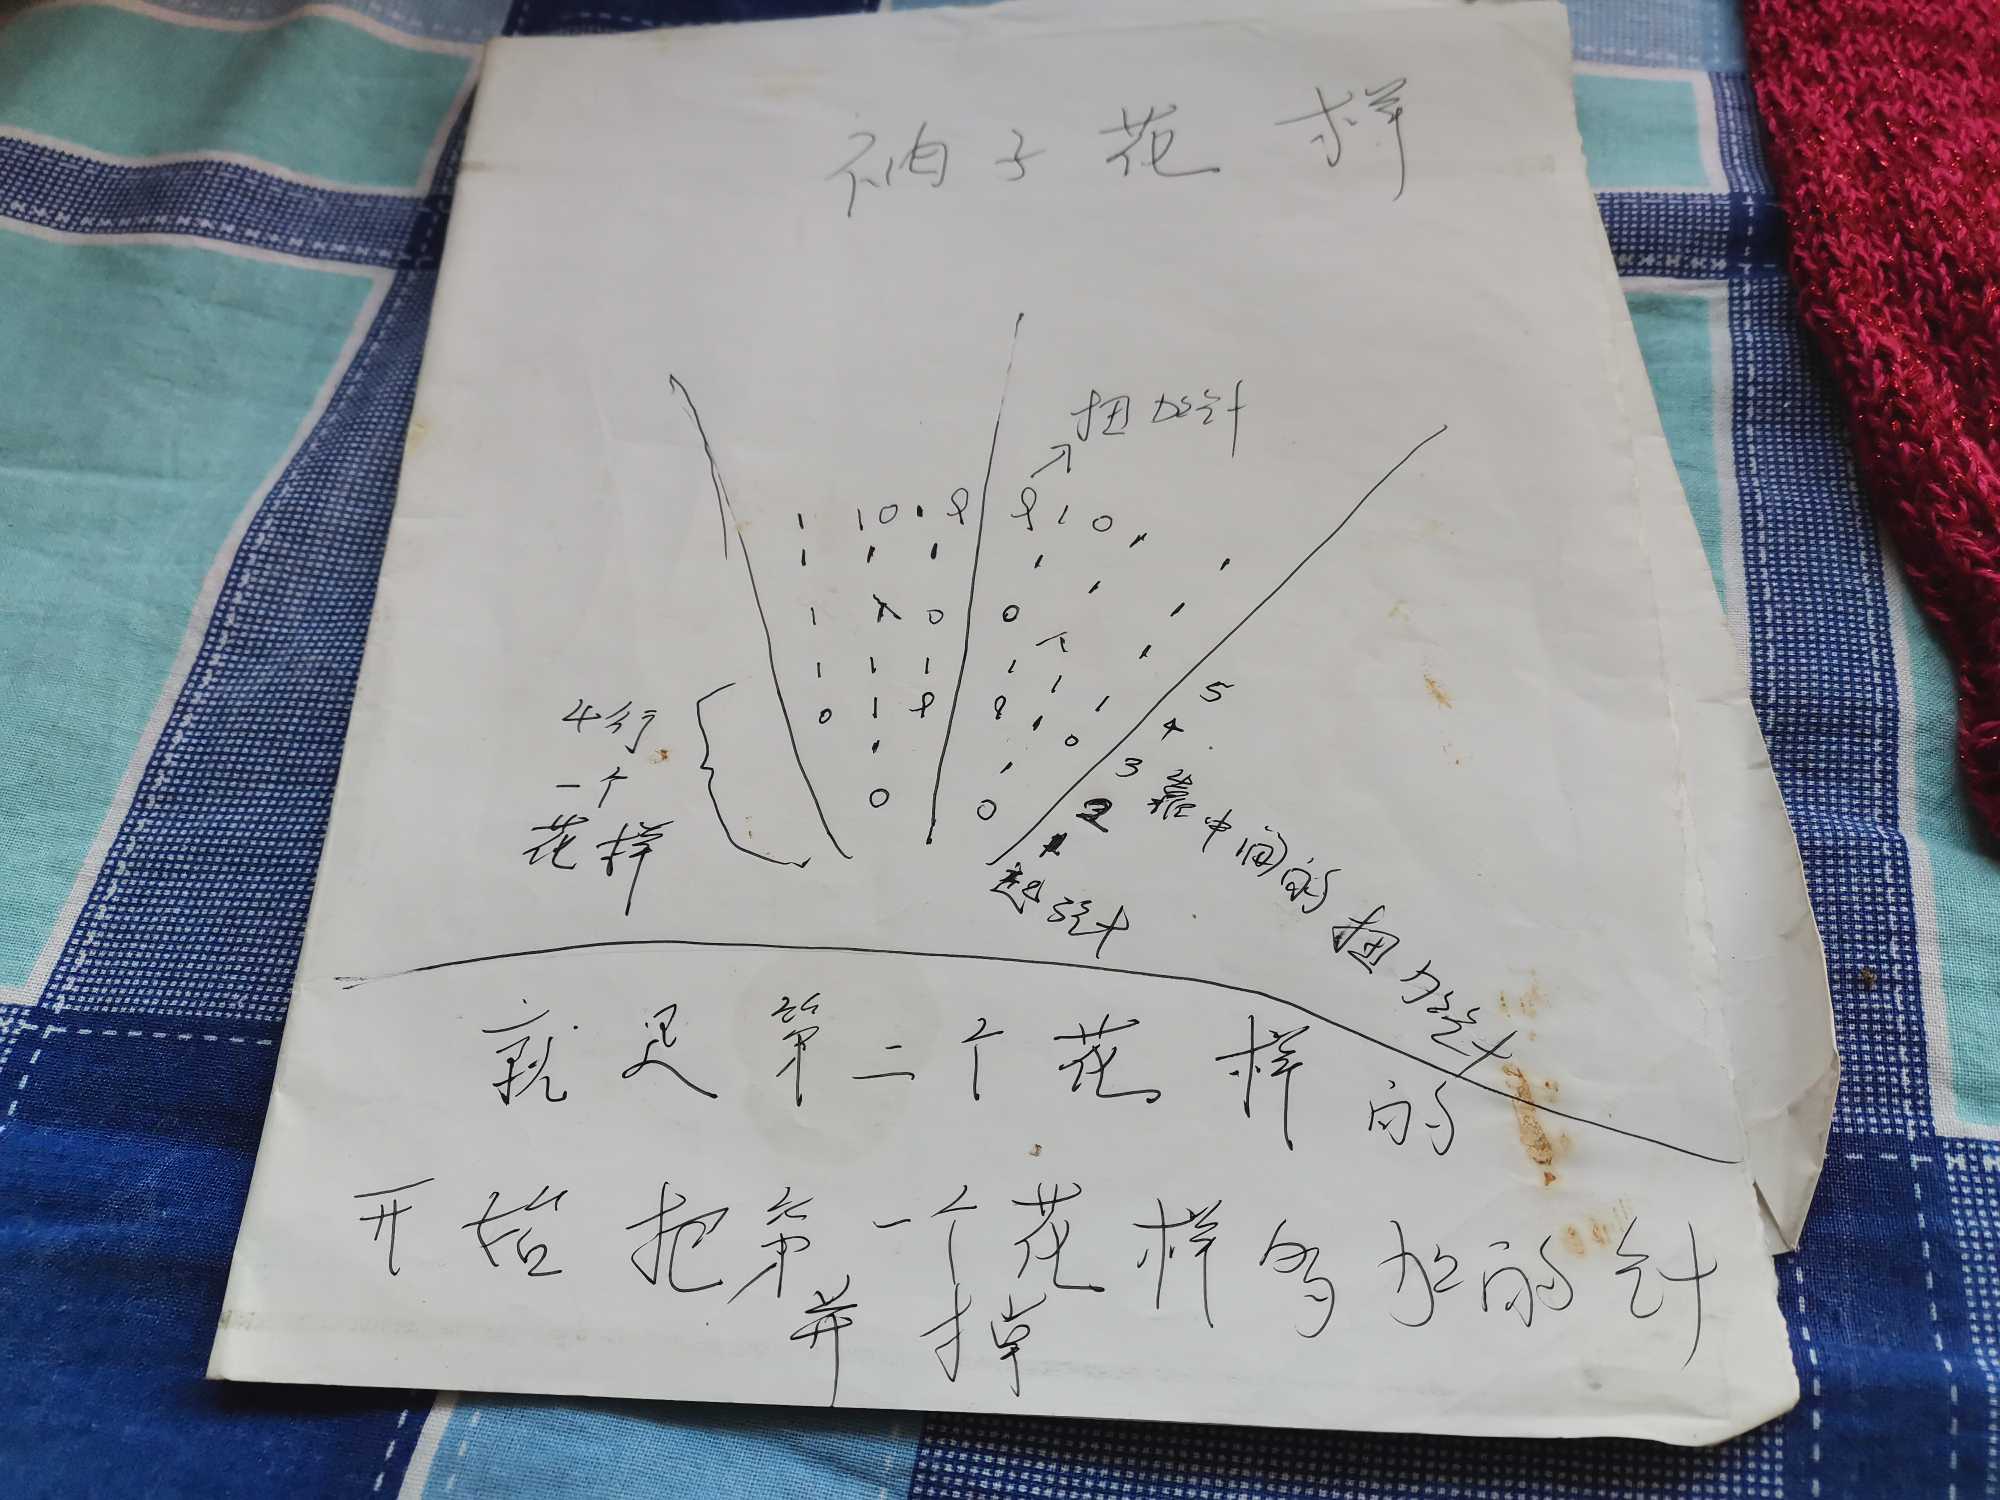 袖子花样
扭加针
1 1 0 1 ｜ 1 0
0 0
0 0
5
4
3
2
1
4行
一个
花样
起针
靠中间的扭加针
就是第二个花样的
开始把第一个花样多加的针
并掉